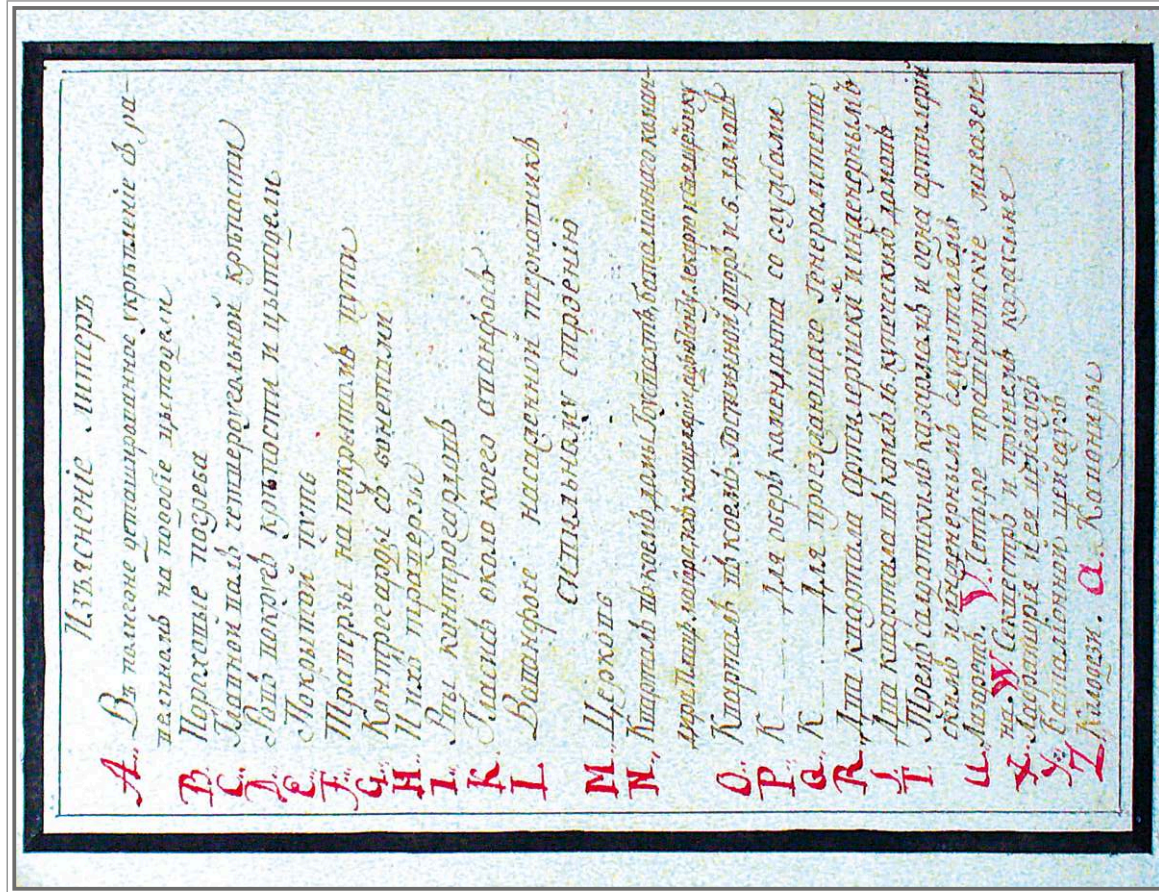 Изъясненіе литеръ
A. Въ полигоне деташированное укрѣпленіе въ ра-
велиномъ на подобе цытодели
B. Пороховые погреба
C. Главной валъ четвероугольной крѣпости
D. Ровъ вокругъ крѣпости и цытадели
E. Покрытой путь
F. Траверзы на покрытомъ пути
G. Контрегарды съ бонетами
H. Ихъ траверзы
I. Рвы контрегардовъ
K. Гласисъ около коего аванфосъ
L. Ватанфосе насаденной терновникъ
сушильному строенію
M. Церковь
N. Кварталъ въ коемъ домы Гобвахтъ, баталионного каман-
дира
O. Кварталъ въ коемъ Гостинный дворъ и 6 домовъ
P. К — Для оберъ каменданта со службами
Q. К — Для проезжающаго генералитета
R. Два квартала артилерійски и инженернымъ
S. Два квартала въ коихъ 16 купеческихъ домовъ
T. Тремъ салдоткимъ казармамъ и одна артилеріи
скимъ и инженернымъ служителямъ
U. Лазаретъ. V. Четыре правіантские магазеи-
на. W. Сикшестръ и при немъ казачья
X. Лаоратория и ея цейгаузъ
Y. Баталіонной цейгаузъ
Z. Колодези. a. Каланиры